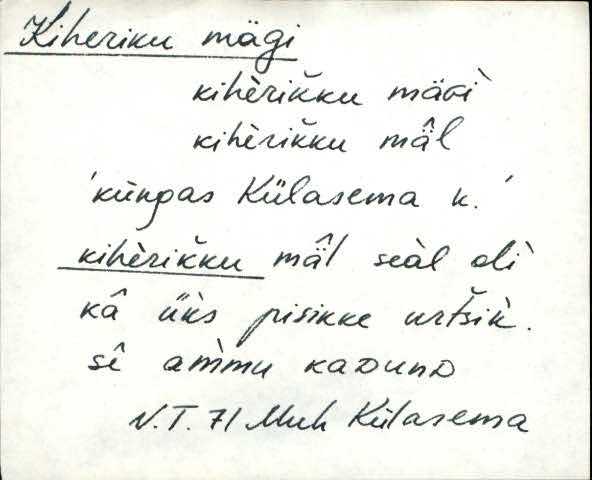 Kiheriku mägi
kihèrikku mäGì
kihèrikku mâ̈l
'küngas Külasema k.'
kihèrikku mâ̈l seàl olì
kâ ǜks pisikke urtšìk.
sê am̀mu kaDunD
N.T. 71 Muh Külasema